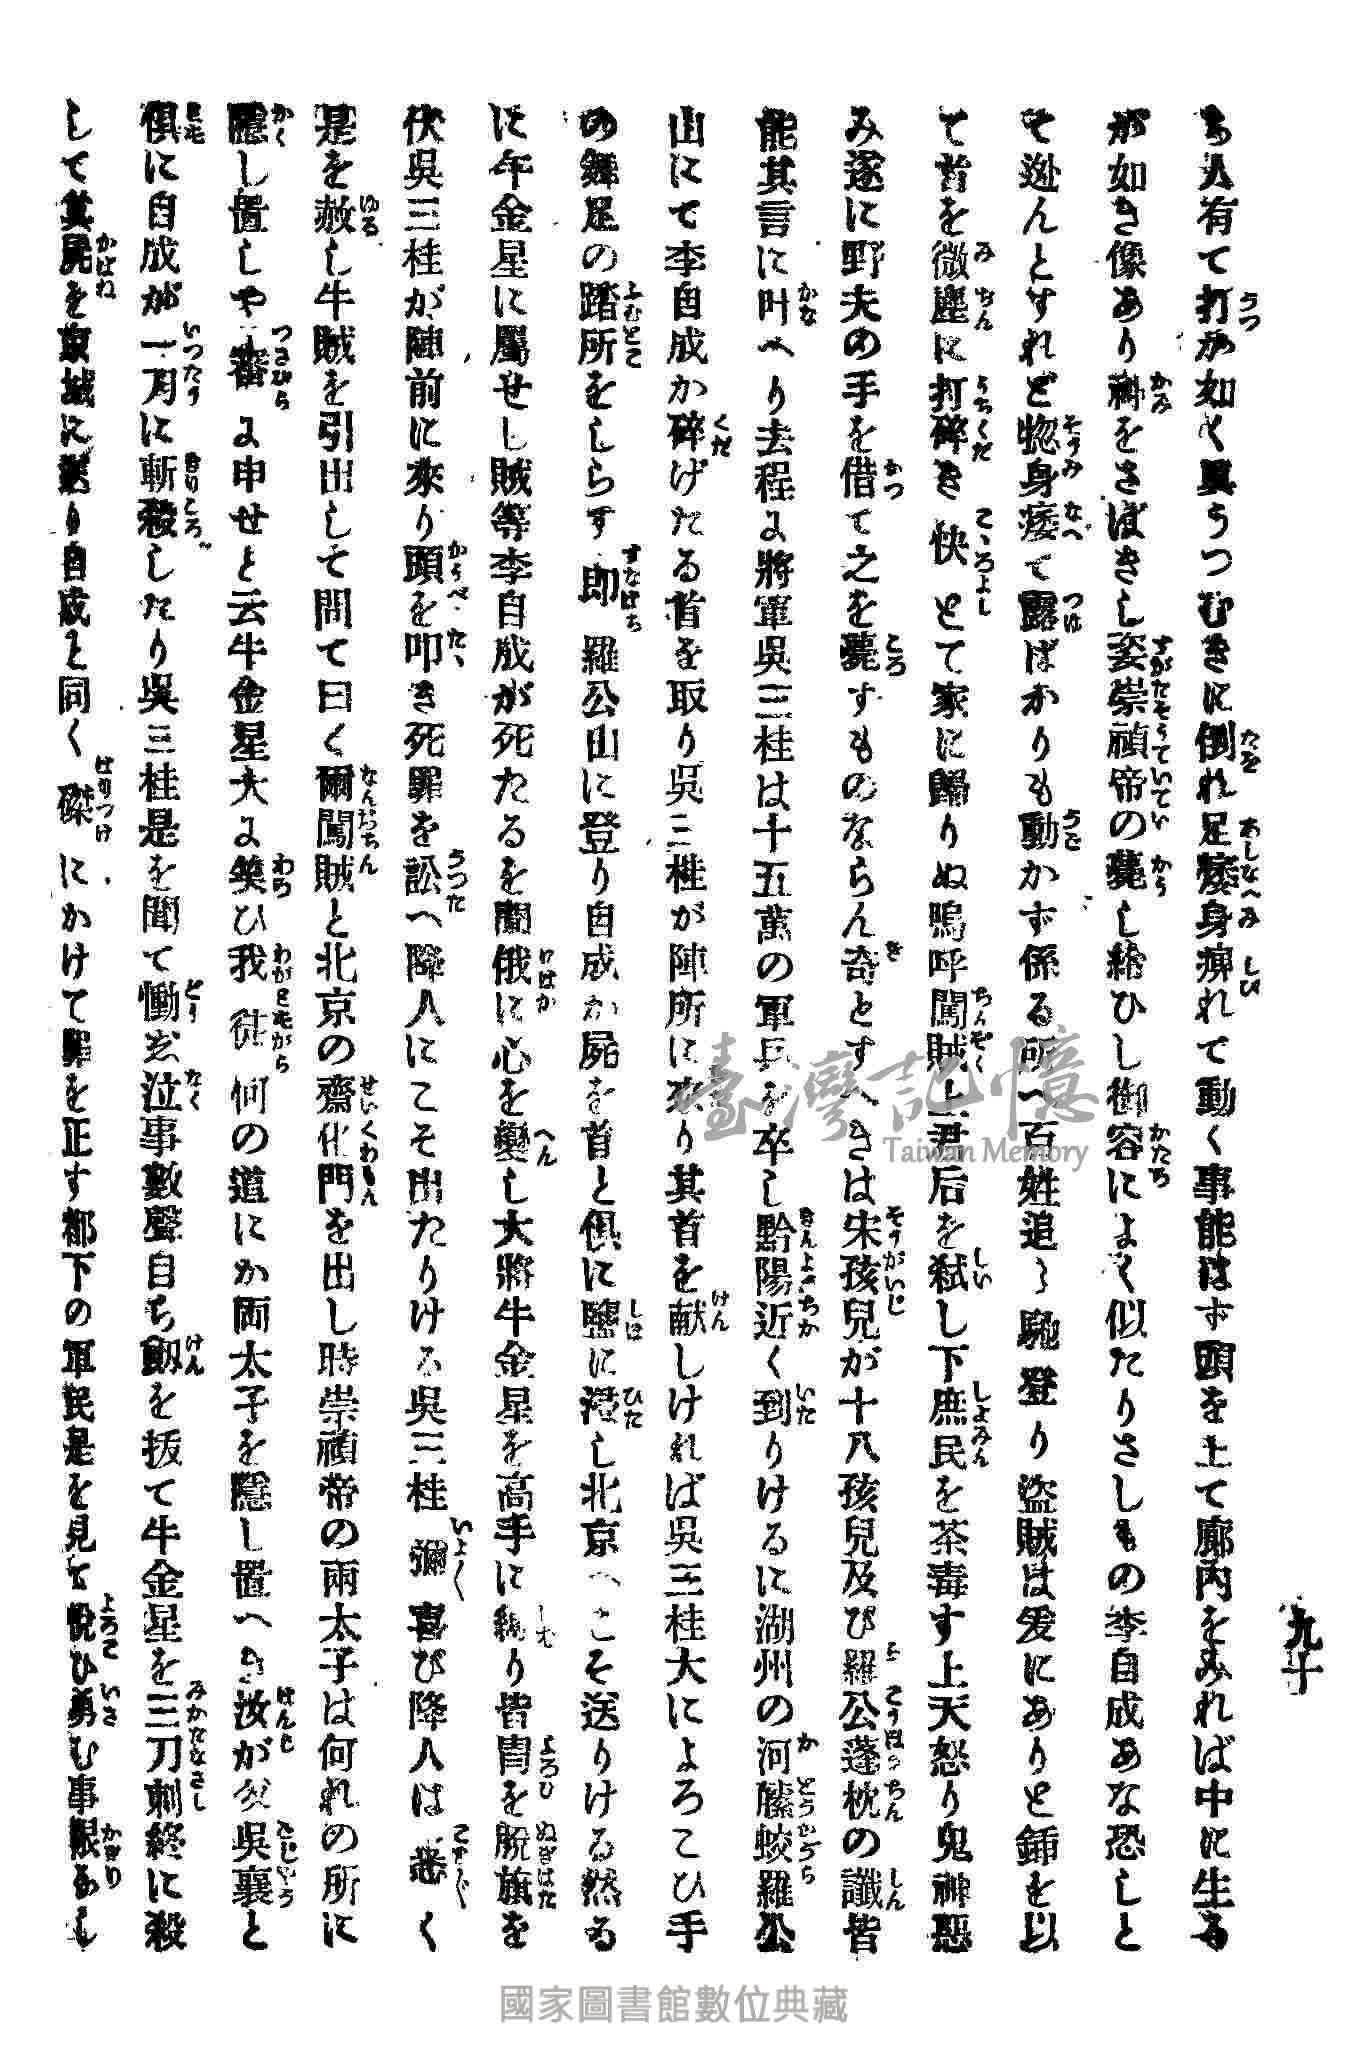 ち人有て打か如く眞うつむきに倒れ足痿身痹れて動く事能はず頭を上て廊内をみれば中に生る
が如き像あり神をさばきし姿崇禎帝の薨し給ひし御容によく似たりさしもの李自成あな恐しと
て逃んとすれど惚身痿て露ばかりも動かず係る所へ百姓追々馳登り盜賊は爰にありと鍤を以
て首を微塵に打碎き快とて家に歸りぬ嗚呼闖賊上君后を弑し下庶民を荼毒す上天怒り鬼神惡
み遂に野夫の手を借て之を薨すものならん奇とすへきは宋孩兒が十八孩兒及び羅公蓬枕の讖皆
能其言に叶へり去程に將軍吳三桂は十五萬の軍兵を卒し黔陽近く到りけるに湖州の河籐蛟羅公
山にて李自成か碎げたる首を取り吳三桂が陣所に來り其首を献しければ吳三桂大によろこひ手
の舞足の踏所をしらす即羅公山に登り自成か屍を首と倶に鹽に浸し北京へこそ送りける然る
に牛金星に屬せし賊等李自成が死たるを聞俄に心を變し大將牛金星を高手に縛り皆冑を脫旗を
伏吳三桂が陣前に來り頭を叩き死罪を訟へ降人にこそ出たりける吳三桂彌喜び降人は悉く
是を赦し牛賊を引出して問て曰く爾闖賊と北京の齋化門を出し時崇禎帝の兩太子は何れの所に
隱し置しや審に申せと云牛金星大に笑ひ我徒何の道にか両太子を隱し置へき汝が父吳襄と
倶に自成が一刀に斬殺したり吳三桂是を聞て慟哀泣事數聲自ち劔を拔て牛金星を三刀刺終に殺
して其屍を京城に送り自成と同く磔にかけて罪を正す都下の軍民是を見て悅ひ勇む事限あし
九十
臺灣記憶
Taiwan Memory
國家圖書館數位典藏